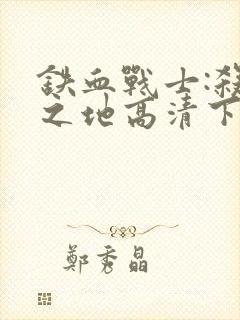 鉄血戰士:殺
之地高清下
鄭秀晶